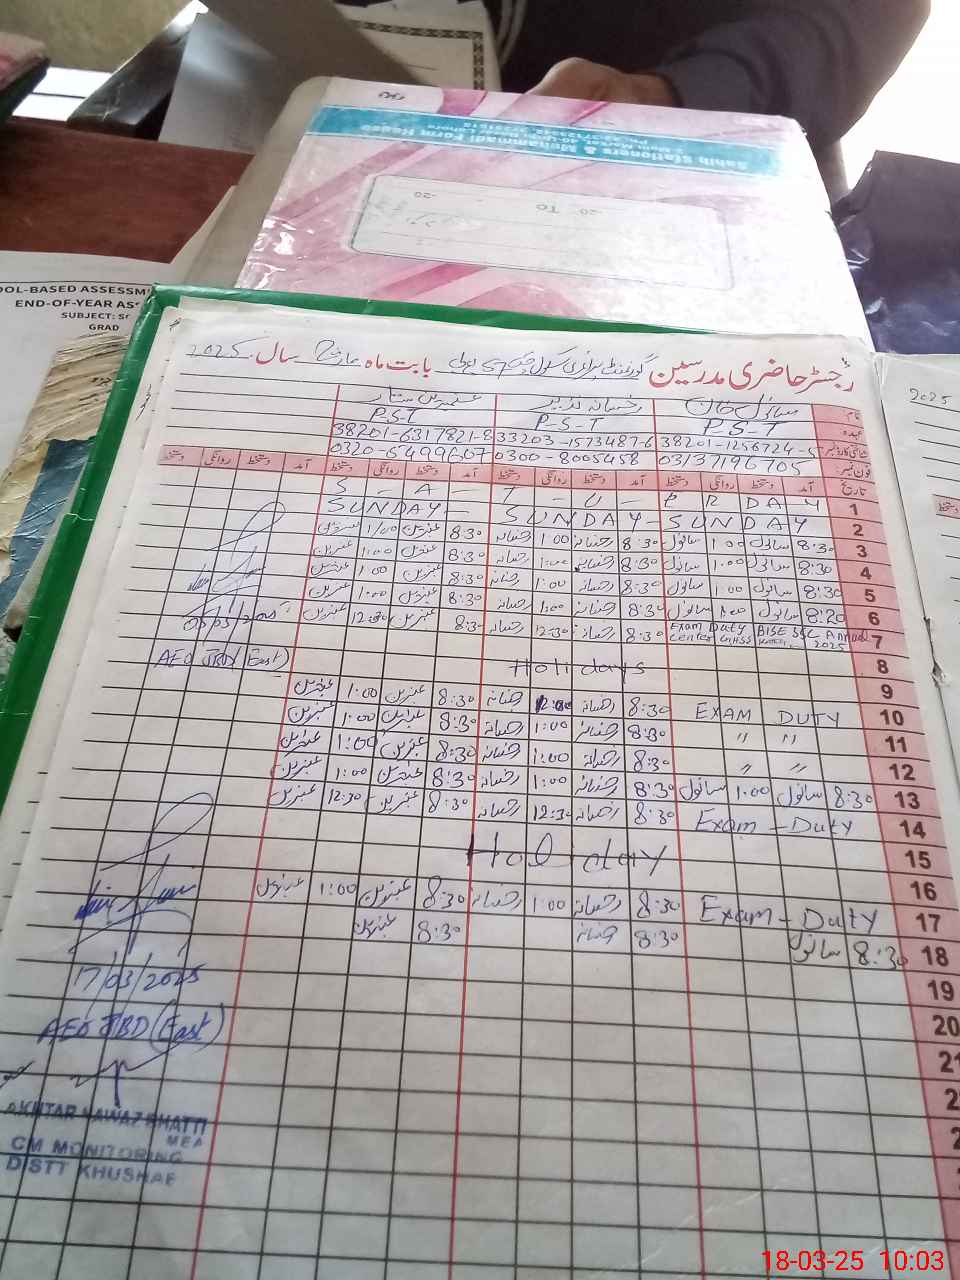 Sahib Stationers & Muhammadi Form House
20 To 20
OOL-BASED ASSESSM
END-OF-YEAR ASS
SUBJECT: Sc
GRAD
رجسٹر حاضری مدرسین گورنمنٹ پرائمری سکول بابت ماہ مارچ سال 2025
2025
نام رخسانہ نذیر عنبرین ستار
عہدہ P-S-T P-S-T P-S-T
شناختی کارڈ نمبر 38201-1256724-5 33203-1573487-6 38201-6317821-8
فون نمبر 03137196705 0300-8005458 0320-6499607
تاریخ آمد دستخط روانگی دستخط آمد دستخط روانگی دستخط آمد دستخط روانگی دستخط آمد روانگی دستخط
1 S - A - T - U - R DAY
2 SUNDAY- SUNDAY- SUNDAY
3 8:30 سانول 1:00 سانول 8:30 رخسانہ 1:00 رخسانہ 8:30 عنبرین 1:00 عنبرین
4 8:30 سانول 1:00 سانول 8:30 رخسانہ 1:00 رخسانہ 8:30 عنبرین 1:00 عنبرین
5 8:30 سانول 1:00 سانول 8:30 رخسانہ 1:00 رخسانہ 8:30 عنبرین 1:00 عنبرین
6 8:20 سانول 1:00 سانول 8:30 رخسانہ 1:00 رخسانہ 8:30 عنبرین 1:00 عنبرین
7 Exam Duty BISE SSC Annual Center GHSS 2025 8:30 رخسانہ 12:30 رخسانہ 8:30 عنبرین 12:30 عنبرین
8 Holidays
9
10 EXAM DUTY 8:30 رخسانہ 12:00 رخسانہ 8:30 عنبرین 1:00 عنبرین
11 " " 8:30 رخسانہ 1:00 رخسانہ 8:30 عنبرین 1:00 عنبرین
12 " " 8:30 رخسانہ 1:00 رخسانہ 8:30 عنبرین 1:00 عنبرین
13 8:30 سانول 1:00 سانول 8:30 رخسانہ 1:00 رخسانہ 8:30 عنبرین 1:00 عنبرین
14 Exam - Duty 8:30 رخسانہ 12:30 رخسانہ 8:30 عنبرین 12:30 عنبرین
15 Holiday
16
17 Exam - Duty 8:30 رخسانہ 1:00 رخسانہ 8:30 عنبرین 1:00 عنبرین
18 8:30 سانول 8:30 رخسانہ 8:30 عنبرین
19
20
21
06/03/2025
AEO JBD (East)
17/03/2025
AEO JBD (East)
AKHTAR NAWAZ BHATTI
MEA
CM MONITORING
DISTT KHUSHAB
18-03-25 10:03